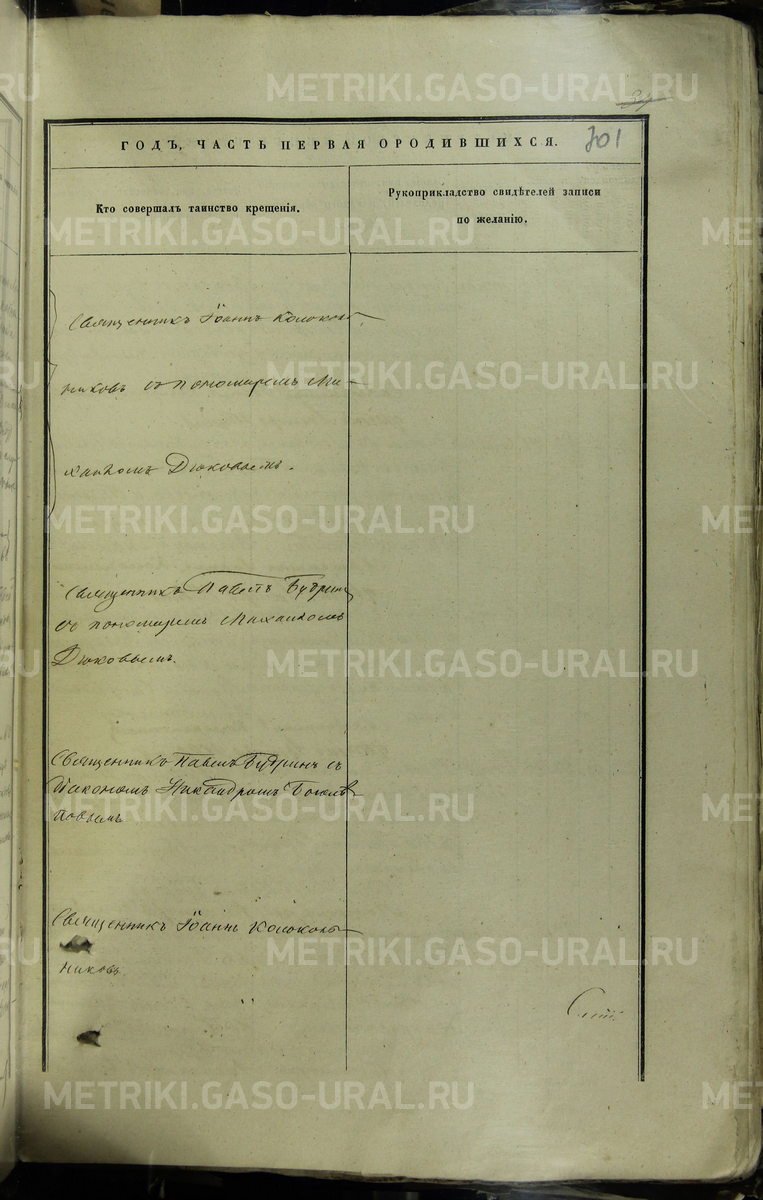 ГОДЪ, ЧАСТЬ ПЕРВАЯ О РОДИВШИХСЯ.
301
Кто совершалъ таинство крещенія.
Рукоприкладство свидѣтелей записи
по желанію.
Священникъ Іоаннъ Колоколь-
никовъ съ пономаремъ Ми-
хаиломъ Дюковымъ.
Священникъ Павелъ Будринъ
съ пономаремъ Михаиломъ
Дюковымъ.
Священникъ Павелъ Будринъ съ
Діакономъ Никандромъ Боголѣ
повымъ
Священникъ Іоаннъ Колоколь-
никовъ
METRIKI.GASO-URAL.RU